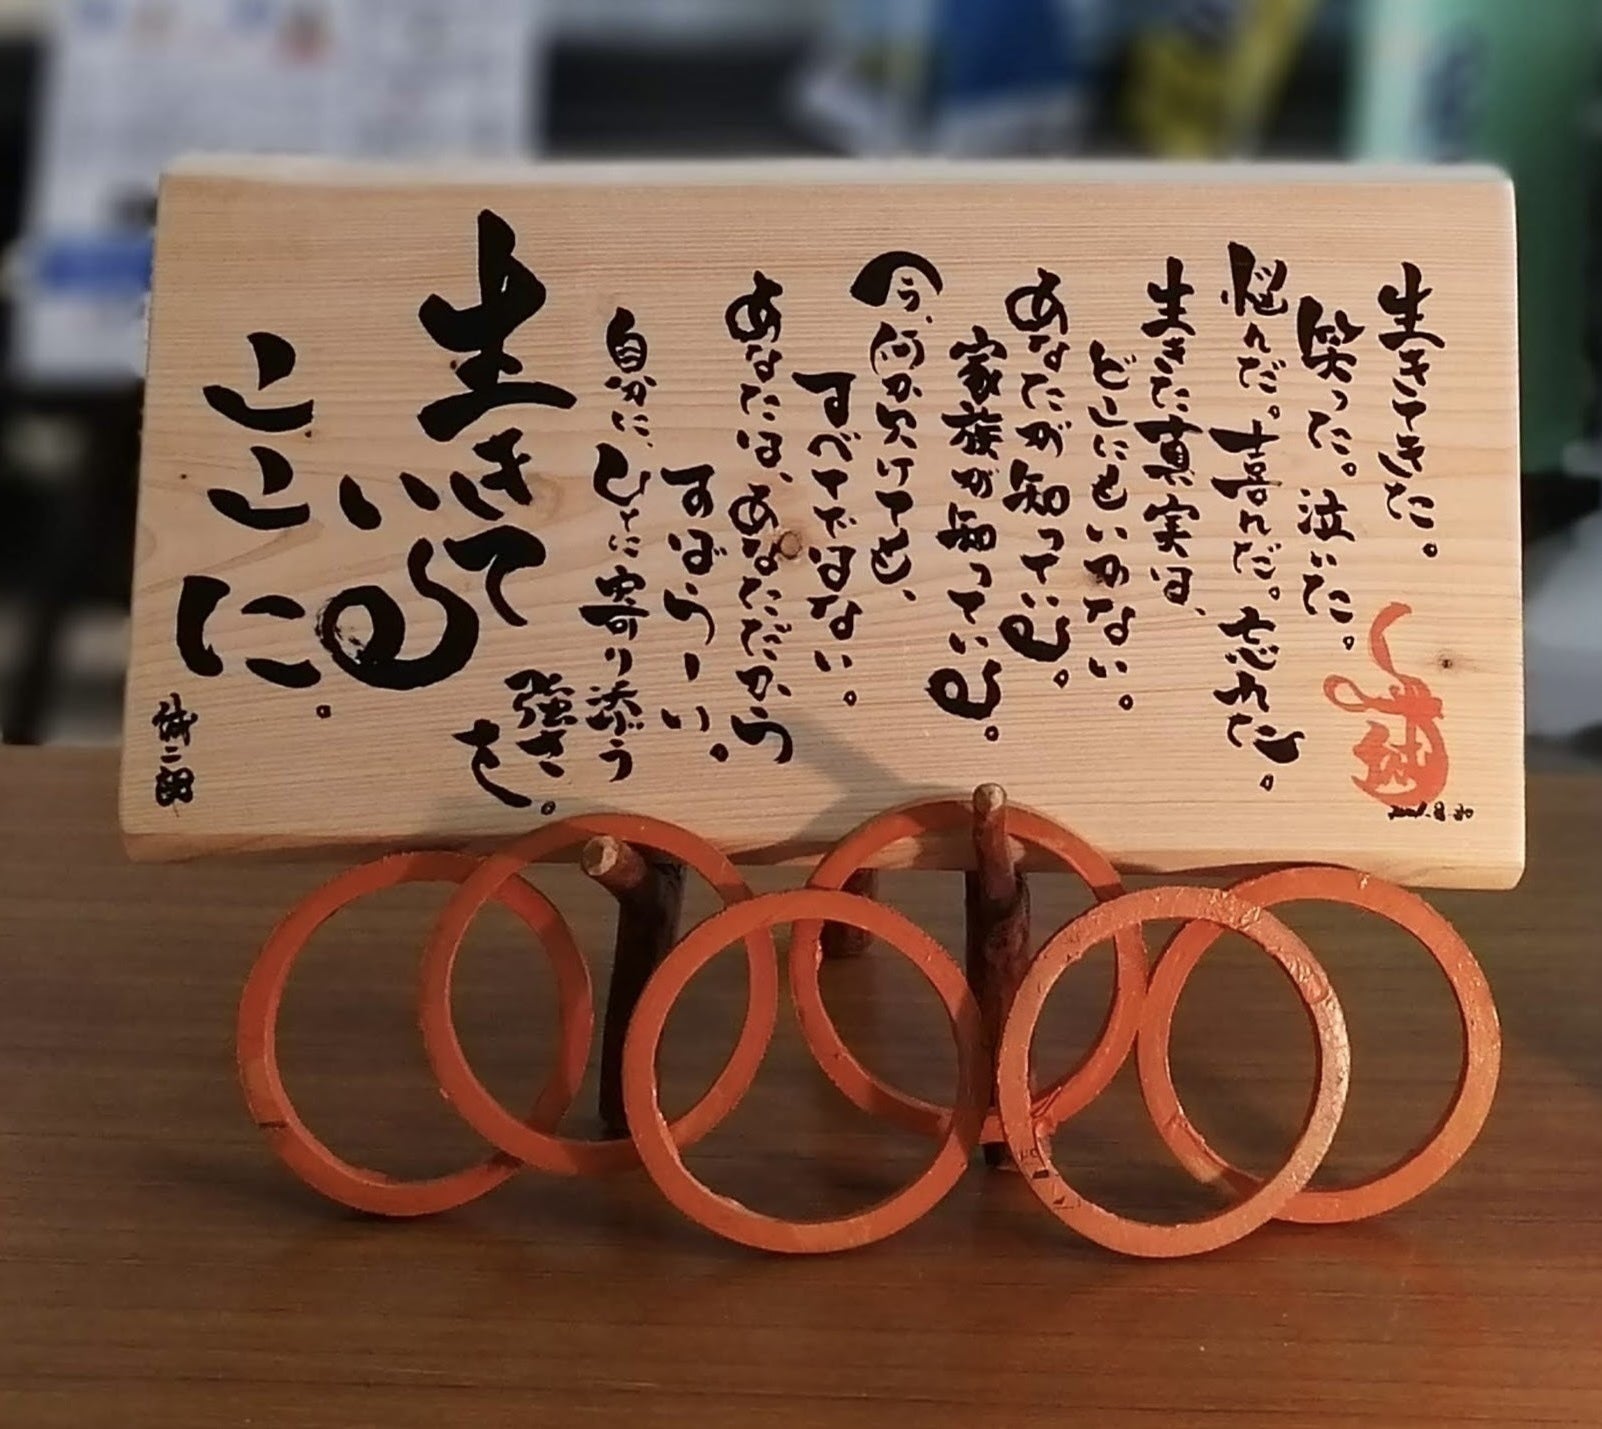 生きてきた。
笑った。泣いた。
悩んだ。喜んだ。忘れた。
生きた真実は、
どこにもいかない。
あなたが知っている。
家族が知っている。
今、何か欠けても、
すべてではない。
あなたは、あなただから
すばらしい。
自分に、ひとに寄り添う
強さを。
生きて
いる
ここに。
誠二郎